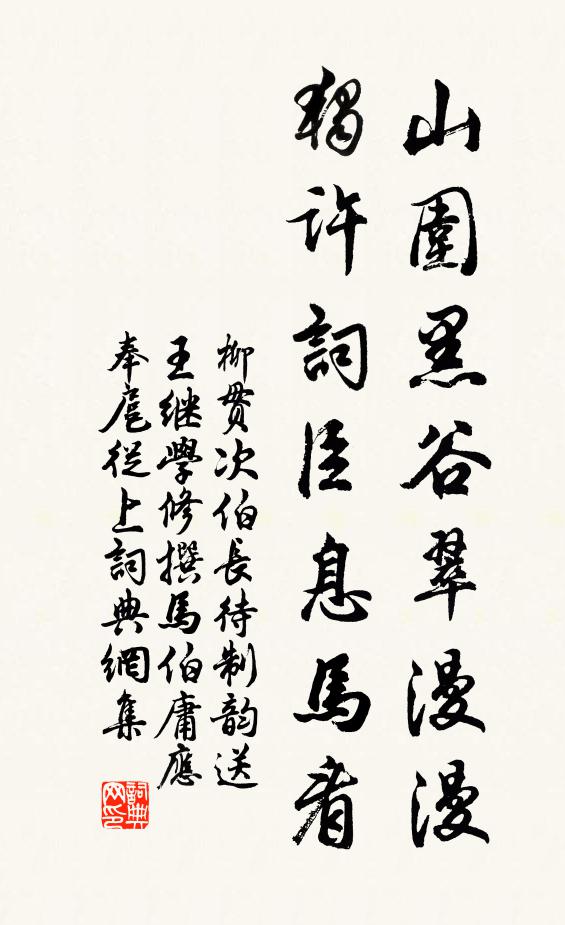 山圍黑谷翠漫漫
獨許詞臣息馬看
柳贯次伯長待制韵送
王继學修撰馬伯庸應
奉扈從上詞典網集
詞典
网印